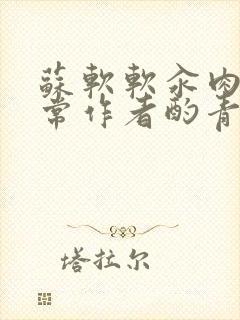 蘇軟軟汆肉
常作者酌青
塔拉尔